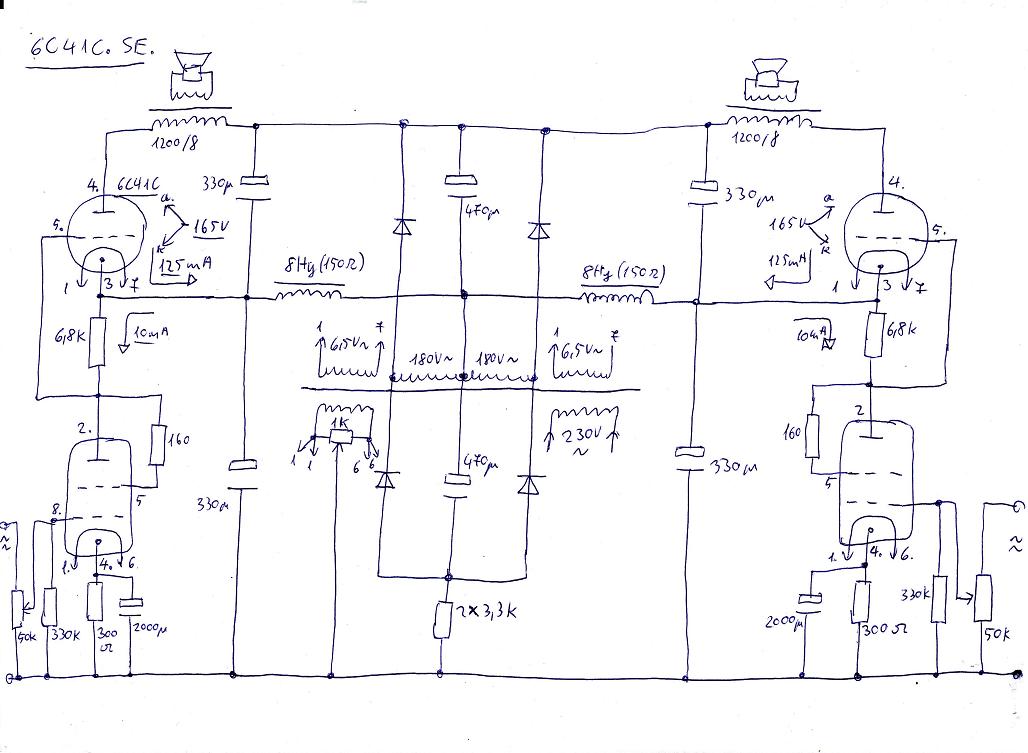 6C41C. SE.
1200/8
1200/8
4.
6C41C
a.
330µ
470µ
330µ
165V
a
4.
5.
165V
k
125mA
k
125mA
5.
1
3
7
8Hy (150Ω)
8Hy (150Ω)
1
3
7
6,8K
10mA
1
7
6,5V~
180V~
180V~
1
7
6,5V~
10mA
6,8K
2.
160
1K
230V
~
2
160
5
1
1
6
6
470µ
330µ
330µ
5
8.
1.
4.
6.
1.
4.
6.
~
~
~
~
50K
330K
300
Ω
2000µ
2×3,3K
2000µ
300Ω
330K
50K